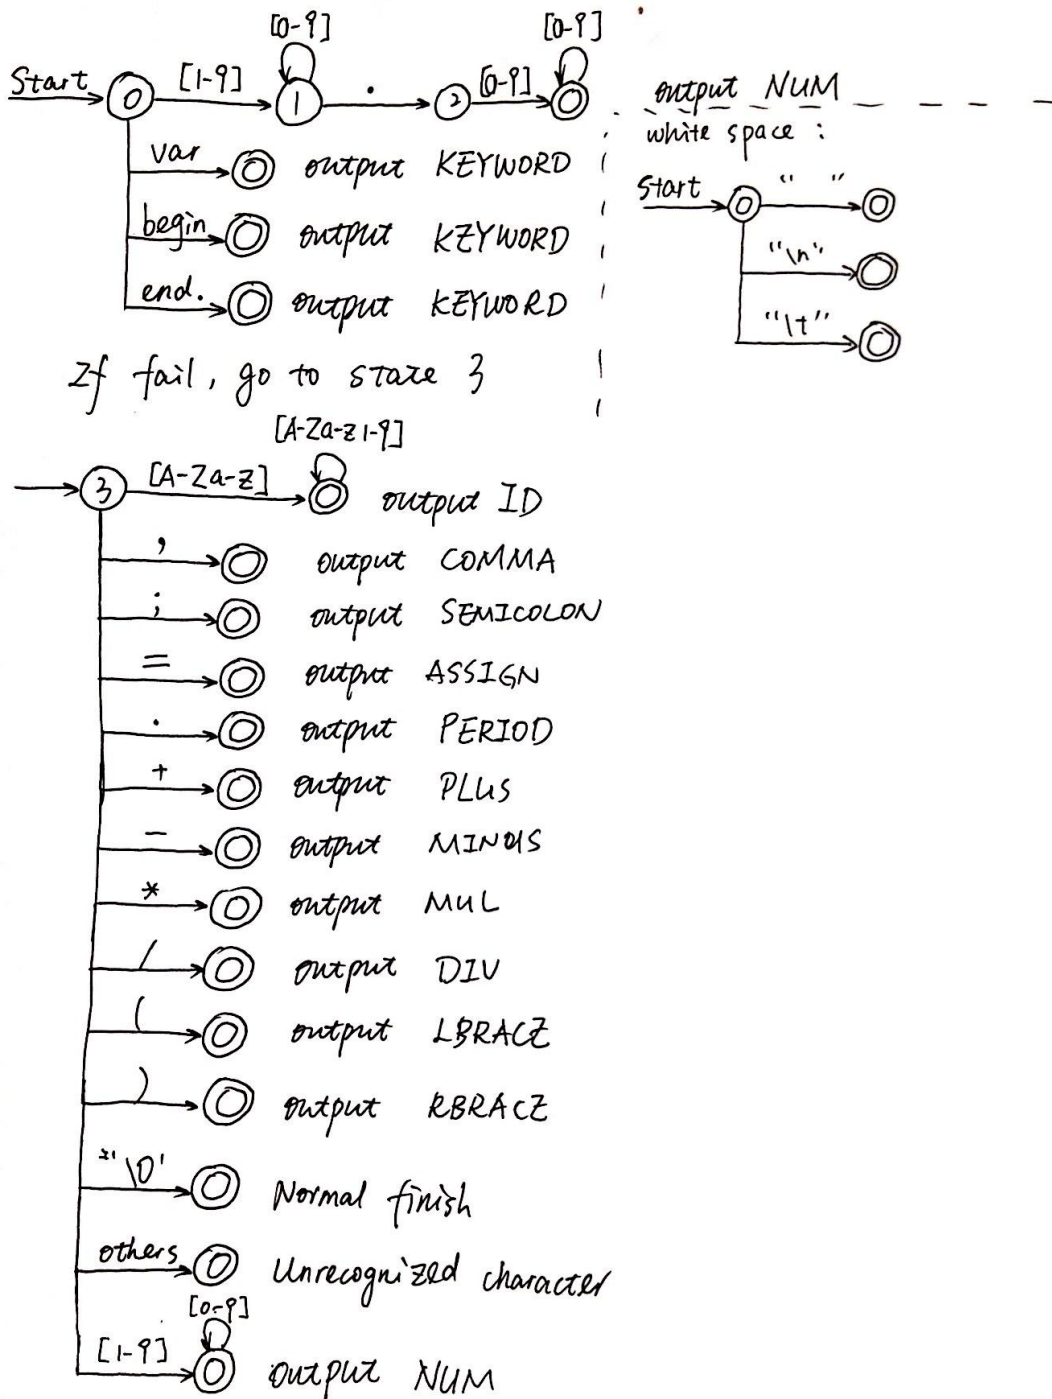 [0-9] [0-9]
Start 0 [1-9] 1 . 2 [0-9] output NUM
var output KEYWORD
begin output KEYWORD
end. output KEYWORD
If fail, go to state 3
white space :
Start " "
"\n"
"\t"
[A-Za-z1-9]
3 [A-Za-z] output ID
, output COMMA
; output SEMICOLON
= output ASSIGN
. output PERIOD
+ output PLUS
- output MINUS
* output MUL
/ output DIV
( output LBRACE
) output RBRACE
'\0' Normal finish
others Unrecognized character
[0-9]
[1-9] output NUM